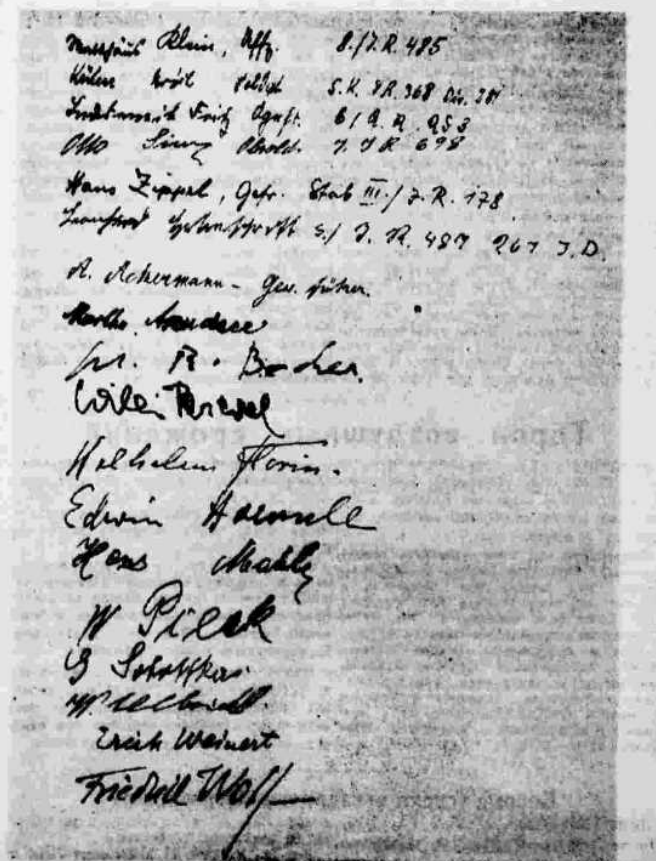 Matthäus Klein, Uffz. 8./I.R. 485
Soldat S.K. I.R. 368 Div. 281
Fritz Ogefr. 6/A.R. 253
Otto Sinz Obsold. 7. I R 698
Hans Zippel, Gefr. Stab III./I.R. 178
Leonhard 5/ I. R. 487 267 I.D.
A. Ackermann - Gew. führer.
Martha Arendsee
Joh. R. Becher.
Willi Bredel
Wilhelm Florin.
Edwin Hoernle
Hans Mahle
W Pieck
G Sobottka
W. Ulbricht.
Erich Weinert
Friedrich Wolf